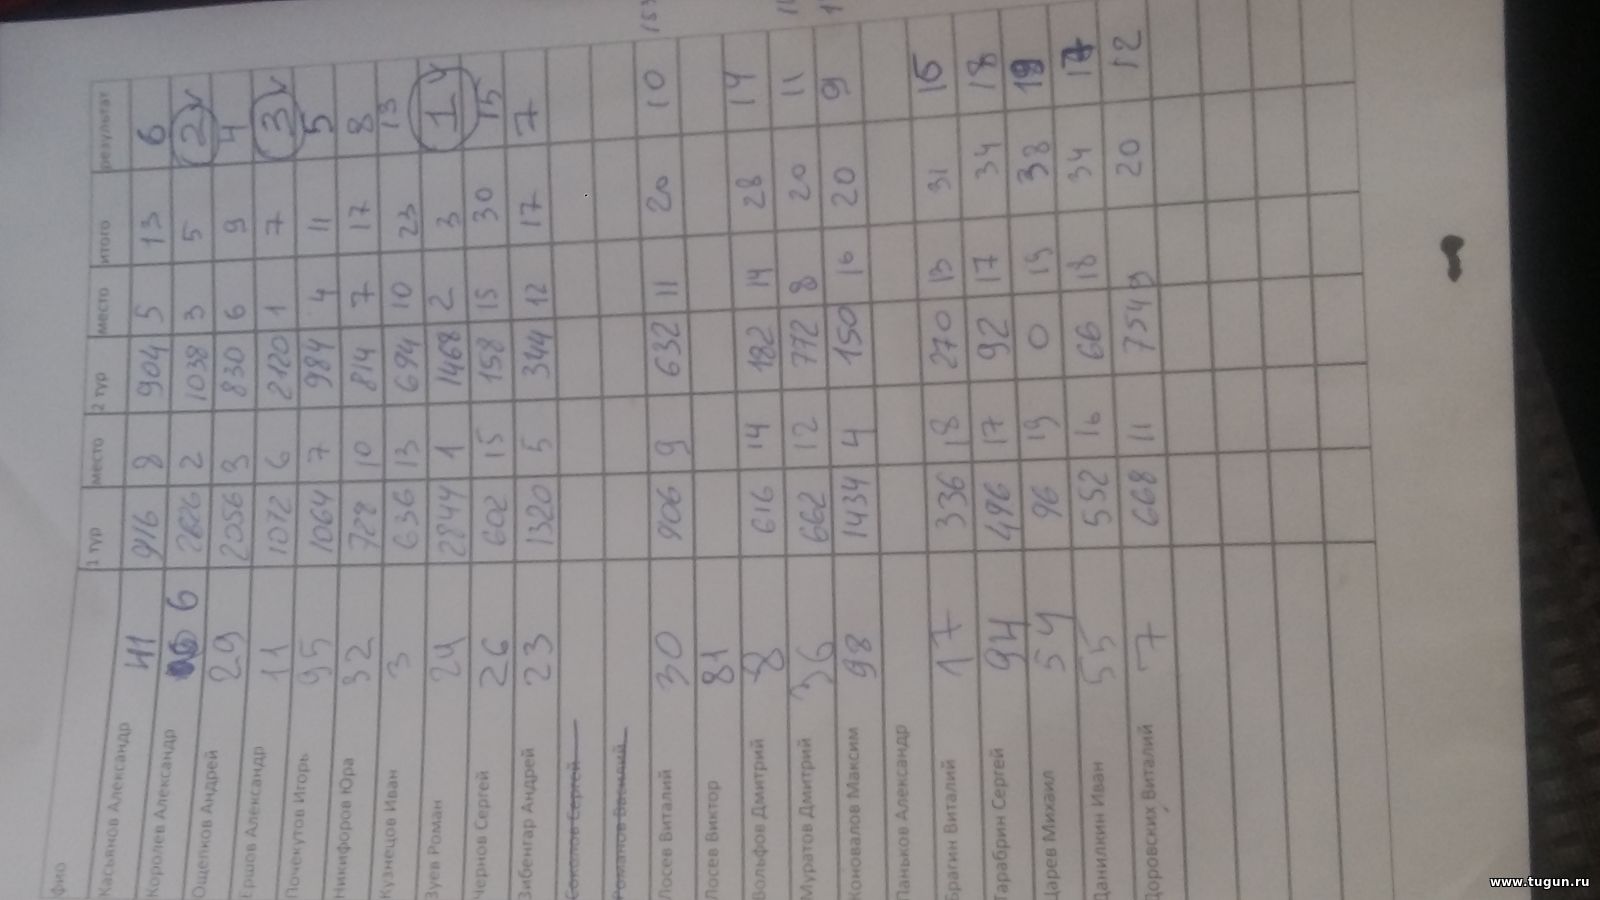 ФИО 1 тур место 2 тур место итого результат
Касьянов Александр 41 916 8 904 5 13 6
Королев Александр 6 2626 2 1038 3 5 2
Ощепков Андрей 29 2056 3 830 6 9 4
Ершов Александр 11 1072 6 2120 1 7 3
Почекутов Игорь 95 1064 7 984 4 11 5
Никифоров Юра 32 728 10 814 7 17 8
Кузнецов Иван 3 636 13 694 10 23 13
Зуев Роман 24 2844 1 1468 2 3 1
Чернов Сергей 26 602 15 158 15 30 15
Зибенгар Андрей 23 1320 5 344 12 17 7
Соколов Сергей
Романов Василий
Лосев Виталий 30 906 9 632 11 20 10
Лосев Виктор 81
Вольфов Дмитрий 8 616 14 182 14 28 14
Муратов Дмитрий 36 662 12 772 8 20 11
Коновалов Максим 98 1434 4 150 16 20 9
Паньков Александр
Брагин Виталий 17 336 18 270 13 31 16
Тарабрин Сергей 94 496 17 92 17 34 18
Царев Михаил 54 96 19 0 19 38 19
Данилкин Иван 55 552 16 66 18 34 17
Доровских Виталий 7 668 11 754 9 20 12
www.tugun.ru